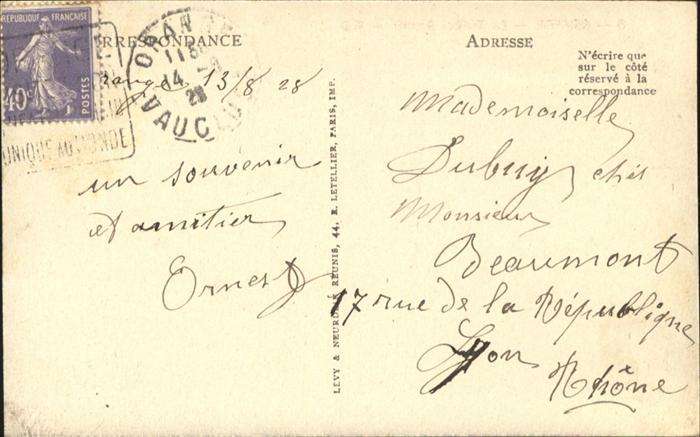 RÉPUBLIQUE FRANÇAISE
40c
POSTES
UNIQUE AU MONDE
ORAN
11
14
28
VAUC
RRESPONDANCE
ADRESSE
N'écrire que
sur le côté
réservé à la
correspondance
range 13/8 28
un souvenir
et amitier
Ernest
LEVY & NEURDEIN RÉUNIS, 44, R. LETELLIER, PARIS, IMP.
Mademoiselle
Dubuy chés
Monsieur
Beaumont
17 rue de la République
Lyon
Rhône